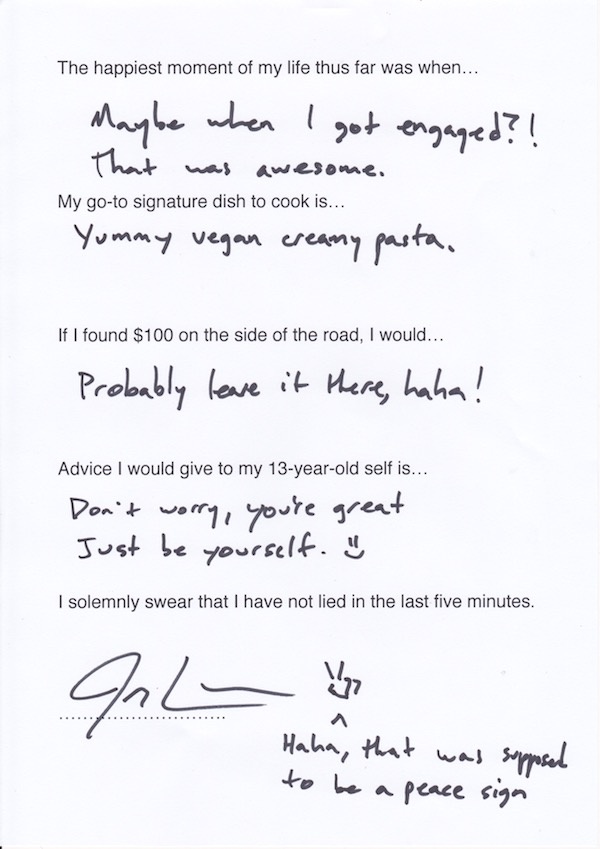 The happiest moment of my life thus far was when…
Maybe when I got engaged?!
That was awesome.
My go-to signature dish to cook is…
Yummy vegan creamy pasta.
If I found $100 on the side of the road, I would…
Probably leave it there, haha!
Advice I would give to my 13-year-old self is…
Don't worry, you're great
Just be yourself.
I solemnly swear that I have not lied in the last five minutes.
Haha, that was supposed
to be a peace sign